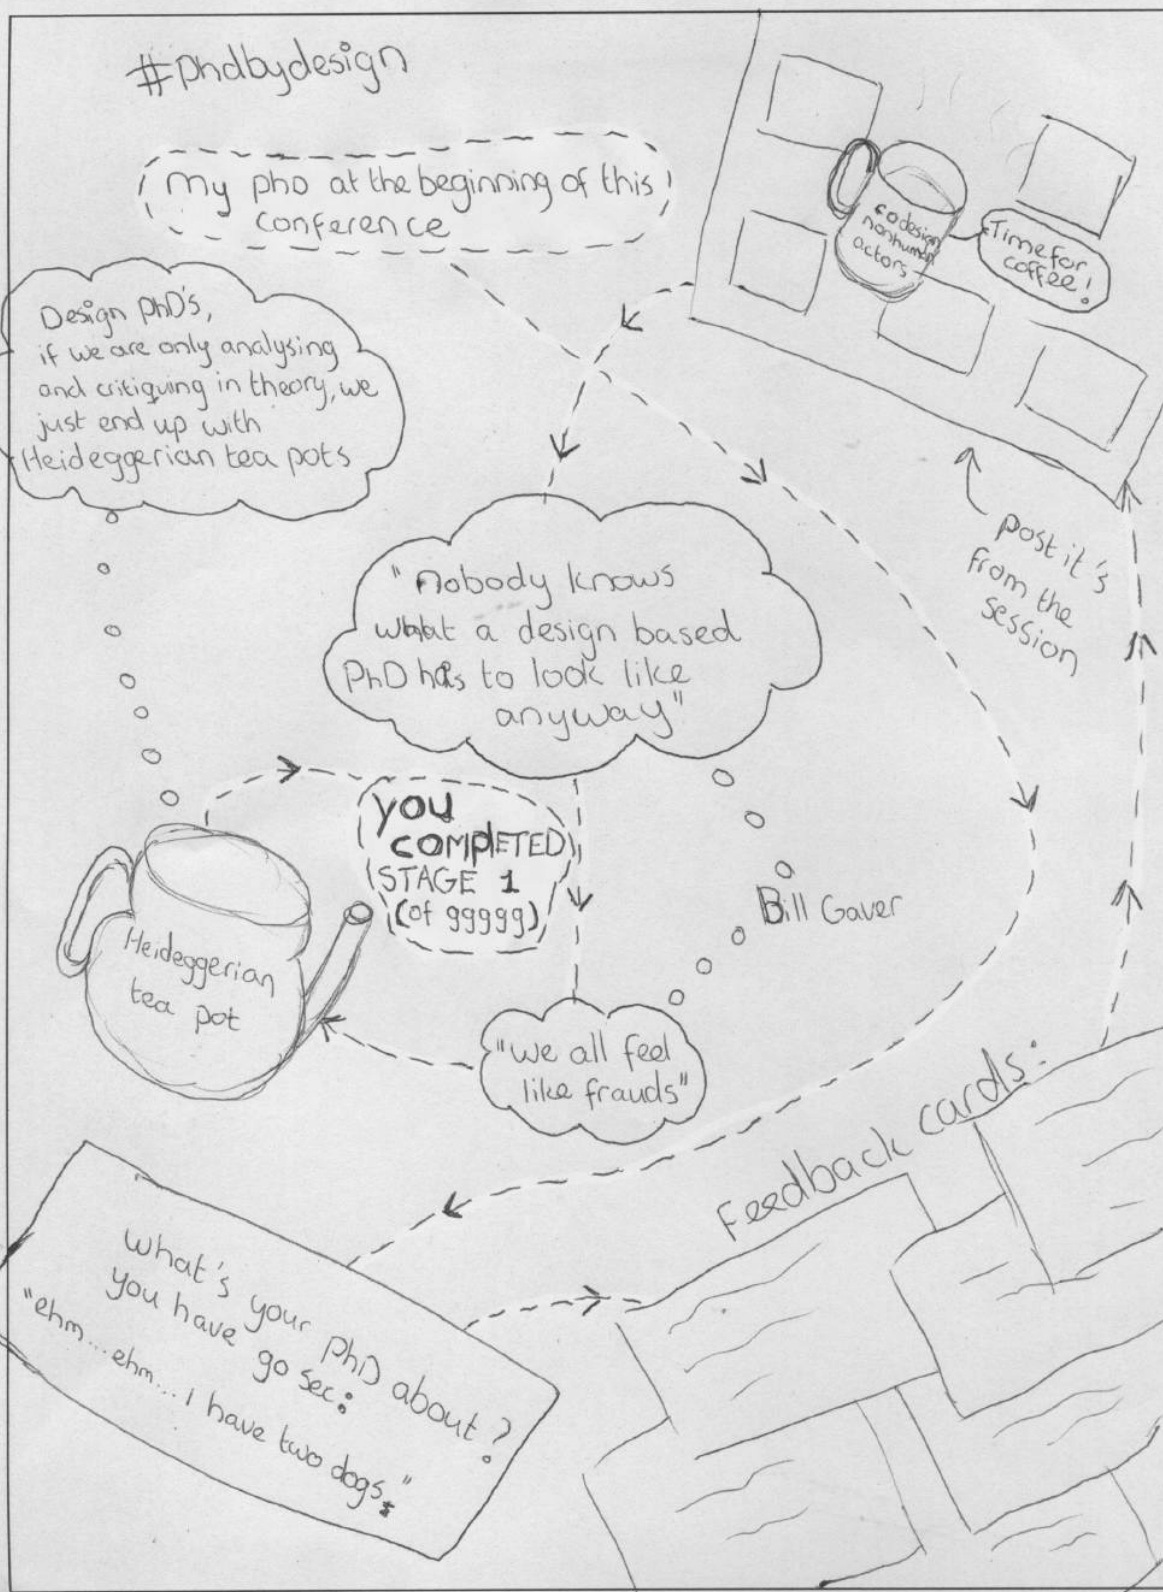 #phdbydesign
My phD at the beginning of this
conference
codesign
nonhuman
actors
Time for
coffee!
Design PhD's,
if we are only analysing
and critiquing in theory, we
just end up with
Heideggerian tea pots
post it's
from the
session
"nobody knows
what a design based
PhD has to look like
anyway"
you
COMPLETED
STAGE 1
(of 99999)
Bill Gaver
Heideggerian
tea pot
"we all feel
like frauds"
Feedback cards:
what's your PhD about?
you have 90 sec:
"ehm...ehm... i have two dogs."